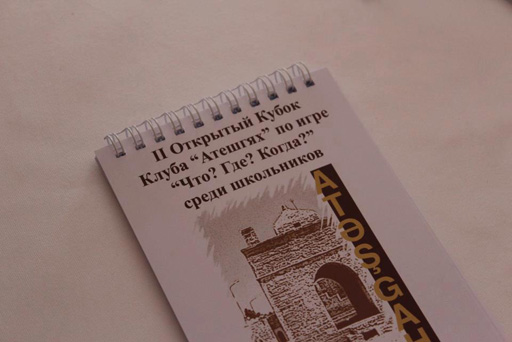 II Открытый Кубок
Клуба “Атешгях” по игре
“Что? Где? Когда?”
среди школьников
ATƏŞGAH